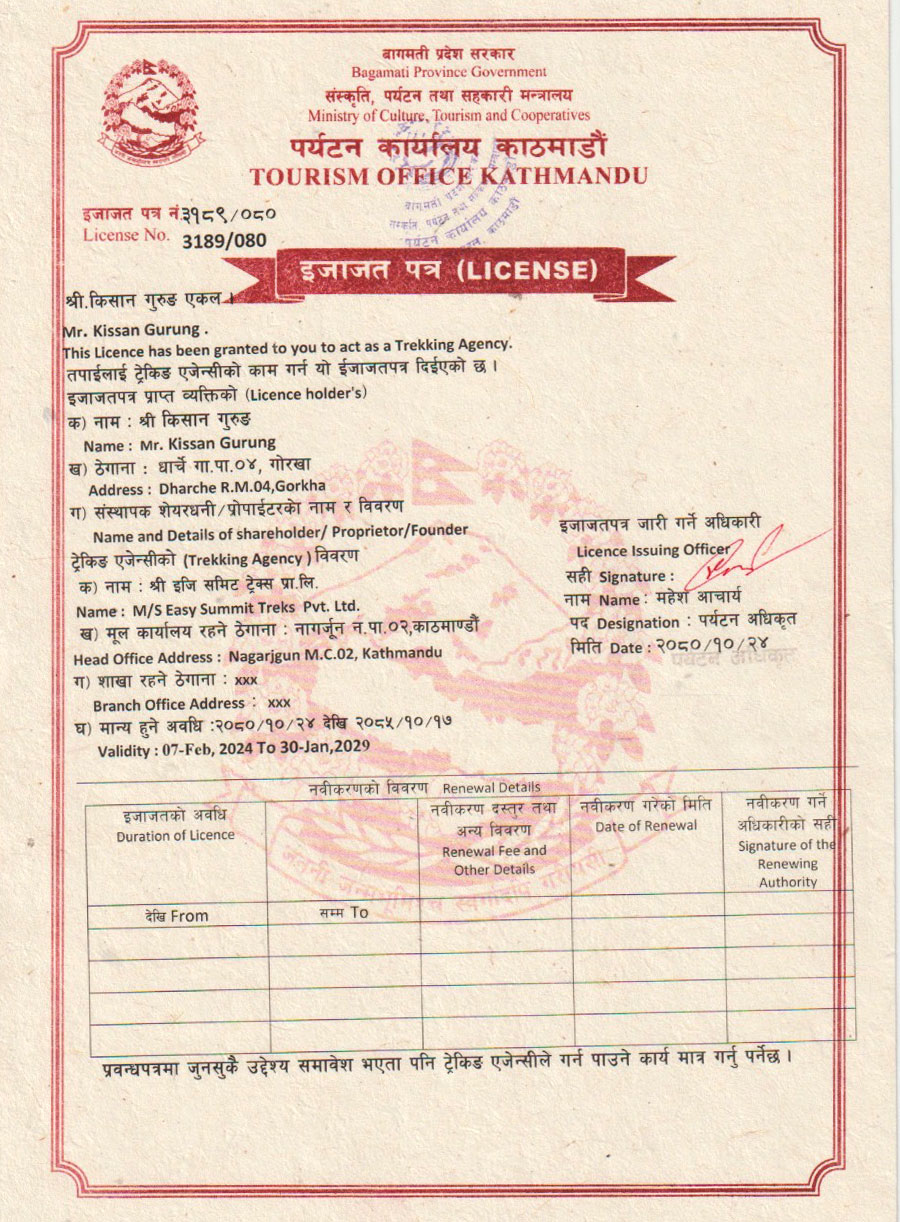 बागमती प्रदेश सरकार
Bagamati Province Government
संस्कृति, पर्यटन तथा सहकारी मन्त्रालय
Ministry of Culture, Tourism and Cooperatives
पर्यटन कार्यालय काठमाडौं
TOURISM OFFICE KATHMANDU
इजाजत पत्र नं.३१८९/०८०
License No. 3189/080
इजाजत पत्र (LICENSE)
श्री.किसान गुरुङ एकल ।
Mr. Kissan Gurung .
This Licence has been granted to you to act as a Trekking Agency.
तपाईलाई ट्रेकिङ एजेन्सीको काम गर्न यो ईजाजतपत्र दिईएको छ ।
इजाजतपत्र प्राप्त व्यक्तिको (Licence holder's)
क) नाम : श्री किसान गुरुङ
Name : Mr. Kissan Gurung
ख) ठेगाना : धार्चे गा.पा.०४, गोरखा
Address : Dharche R.M.04,Gorkha
ग) संस्थापक शेयरधनी/प्रोपाईटरको नाम र विवरण
Name and Details of shareholder/ Proprietor/Founder
ट्रेकिङ एजेन्सीको (Trekking Agency ) विवरण
क) नाम : श्री इजि समिट ट्रेक्स प्रा.लि.
Name : M/S Easy Summit Treks Pvt. Ltd.
ख) मूल कार्यालय रहने ठेगाना : नागर्जून न.पा.०२,काठमाण्डौं
Head Office Address : Nagarjgun M.C.02, Kathmandu
ग) शाखा रहने ठेगाना : xxx
Branch Office Address : xxx
घ) मान्य हुने अवधि :२०८०/१०/२४ देखि २०८५/१०/१७
Validity : 07-Feb, 2024 To 30-Jan,2029
इजाजतपत्र जारी गर्ने अधिकारी
Licence Issuing Officer
सही Signature :
नाम Name : महेश आचार्य
पद Designation : पर्यटन अधिकृत
मिति Date : २०८०/१०/२४
पर्यटन अधिकृत
नवीकरणको विवरण Renewal Details
इजाजतको अवधि
Duration of Licence
नवीकरण दस्तुर तथा
अन्य विवरण
Renewal Fee and
Other Details
नवीकरण गरेको मिति
Date of Renewal
नवीकरण गर्ने
अधिकारीको सही
Signature of the
Renewing
Authority
देखि From
सम्म To
जननी जन्मभूमिश्च स्वर्गादपि गरीयसी
प्रवन्धपत्रमा जुनसुकै उद्देश्य समावेश भएता पनि ट्रेकिङ एजेन्सीले गर्न पाउने कार्य मात्र गर्नु पर्नेछ ।